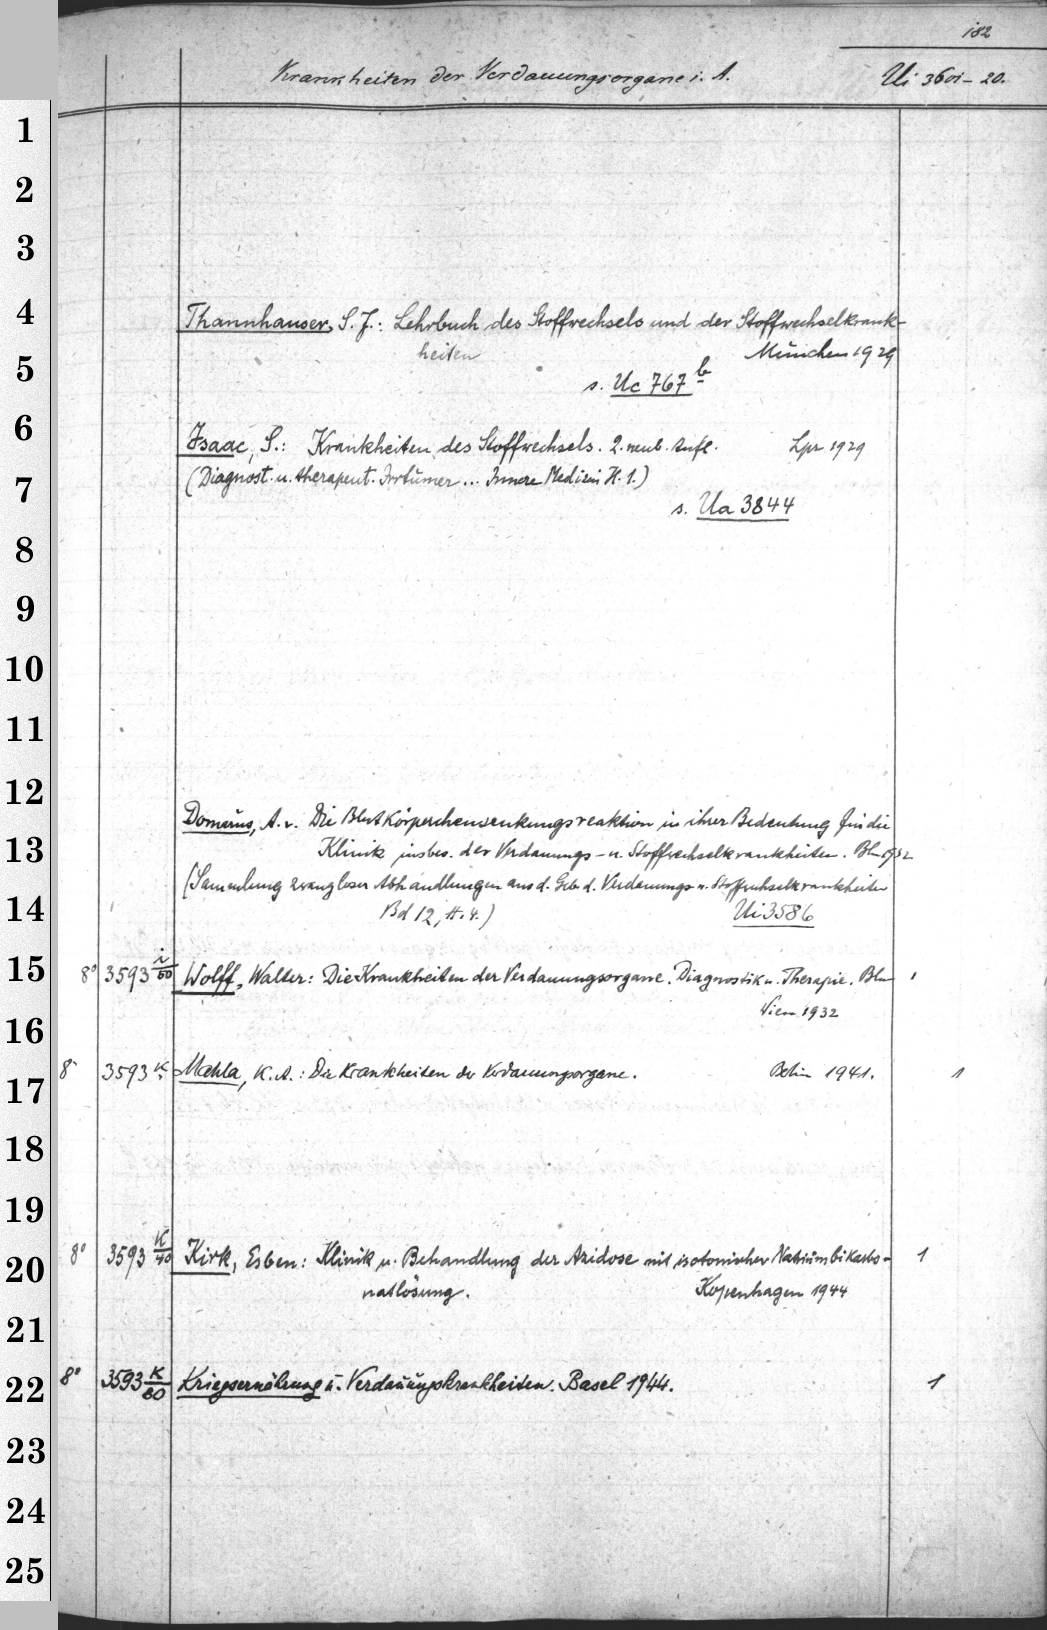 182
Krankheiten der Verdauungsorgane i. A.
Ui 3601-20.
Thannhauser, S. J.: Lehrbuch des Stoffwechsels und der Stoffwechselkrank-
heiten München 1929
s. Uc 767 b
Isaac, S.: Krankheiten des Stoffwechsels. 2. neub. Aufl. Lpz 1929
(Diagnost. u. therapeut. Irrtümer ... Innere Medizin H. 1.)
s. Ua 3844
Domarus, A. v. Die Blutkörperchensenkungsreaktion in ihrer Bedeutung für die
Klinik insbes. der Verdauungs- u. Stoffwechselkrankheiten. Bln 1932
(Sammlung zwangloser Abhandlungen aus d. Geb. d. Verdauungs- u. Stoffwechselkrankheiten
Bd 12, H. 4.) Ui 3586
8° 3593 i/50 Wolff, Walter: Die Krankheiten der Verdauungsorgane. Diagnostik u. Therapie. Bln
Wien 1932
8° 3593 K Mahla, K. A.: Die Krankheiten der Verdauungsorgane. Berlin 1941. 1
8° 3593 K/40 Kirk, Esben: Klinik u. Behandlung der Azidose mit isotonischer Natriumbikarbo- 1
natlösung. Kopenhagen 1944
8° 3593 K/80 Kriegsernährung u. Verdauungskrankheiten. Basel 1944. 1
1
2
3
4
5
6
7
8
9
10
11
12
13
14
15
16
17
18
19
20
21
22
23
24
25